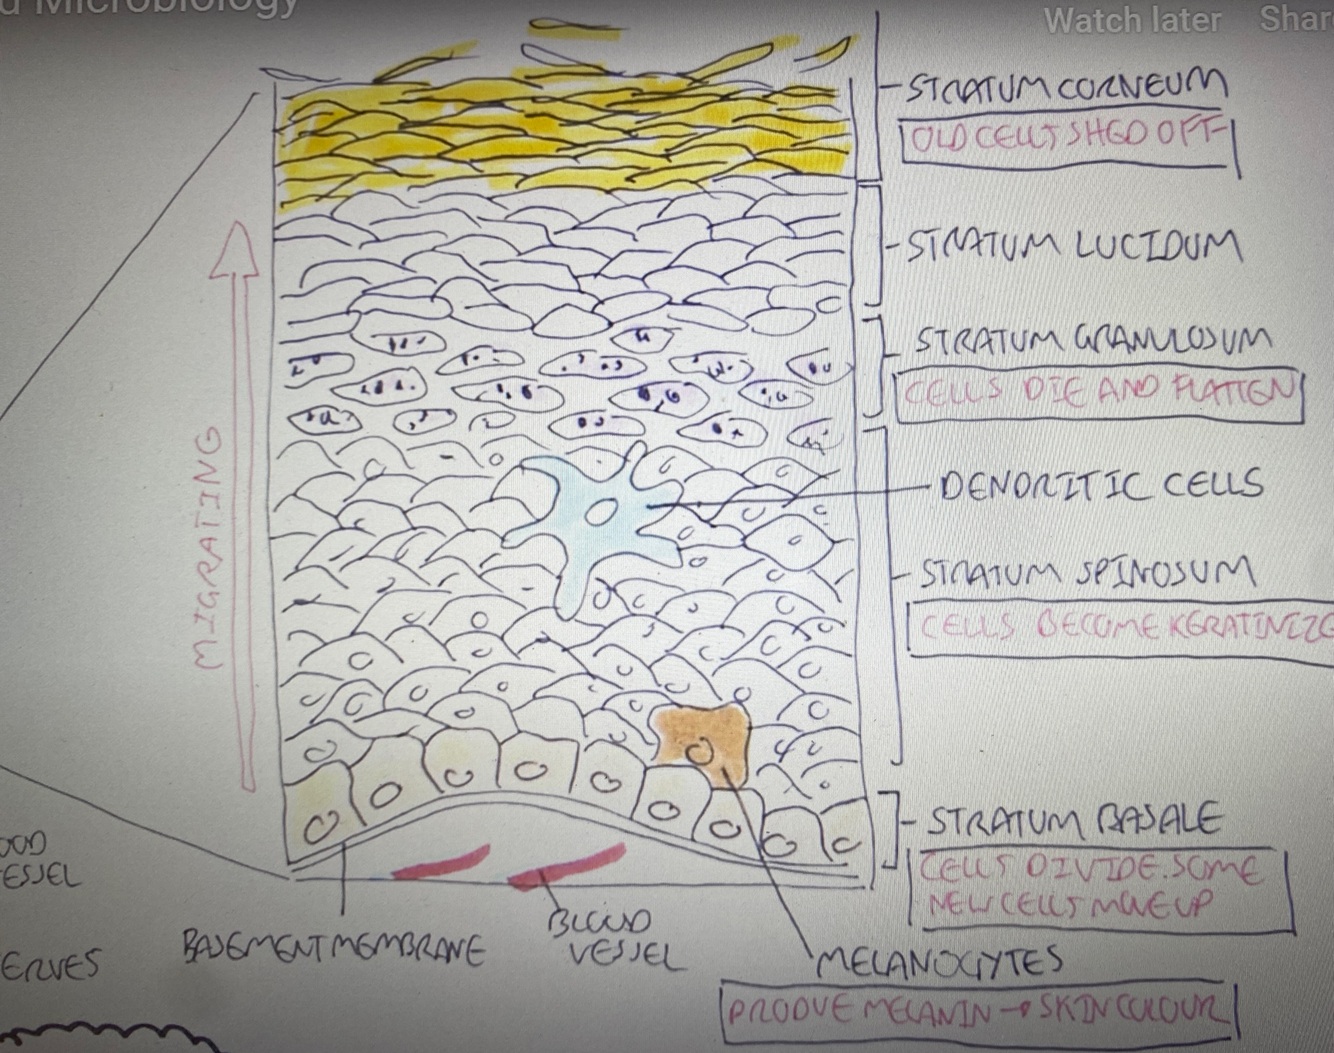 d Microbiology
Watch later Shar
STRATUM CORNEUM
OLD CELLS SHED OFF
STRATUM LUCIDUM
STRATUM GRANULOSUM
CELLS DIE AND FLATTEN
DENDRITIC CELLS
STRATUM SPINOSUM
CELLS BECOME KERATINIZE
MIGRATING
STRATUM BASALE
CELLS DIVIDE. SOME
NEW CELLS MOVE UP
OOD
ESSEL
BASEMENT MEMBRANE
BLOOD
VESSEL
ERVES
MELANOCYTES
PRODUVE MELANIN → SKIN COLOUR